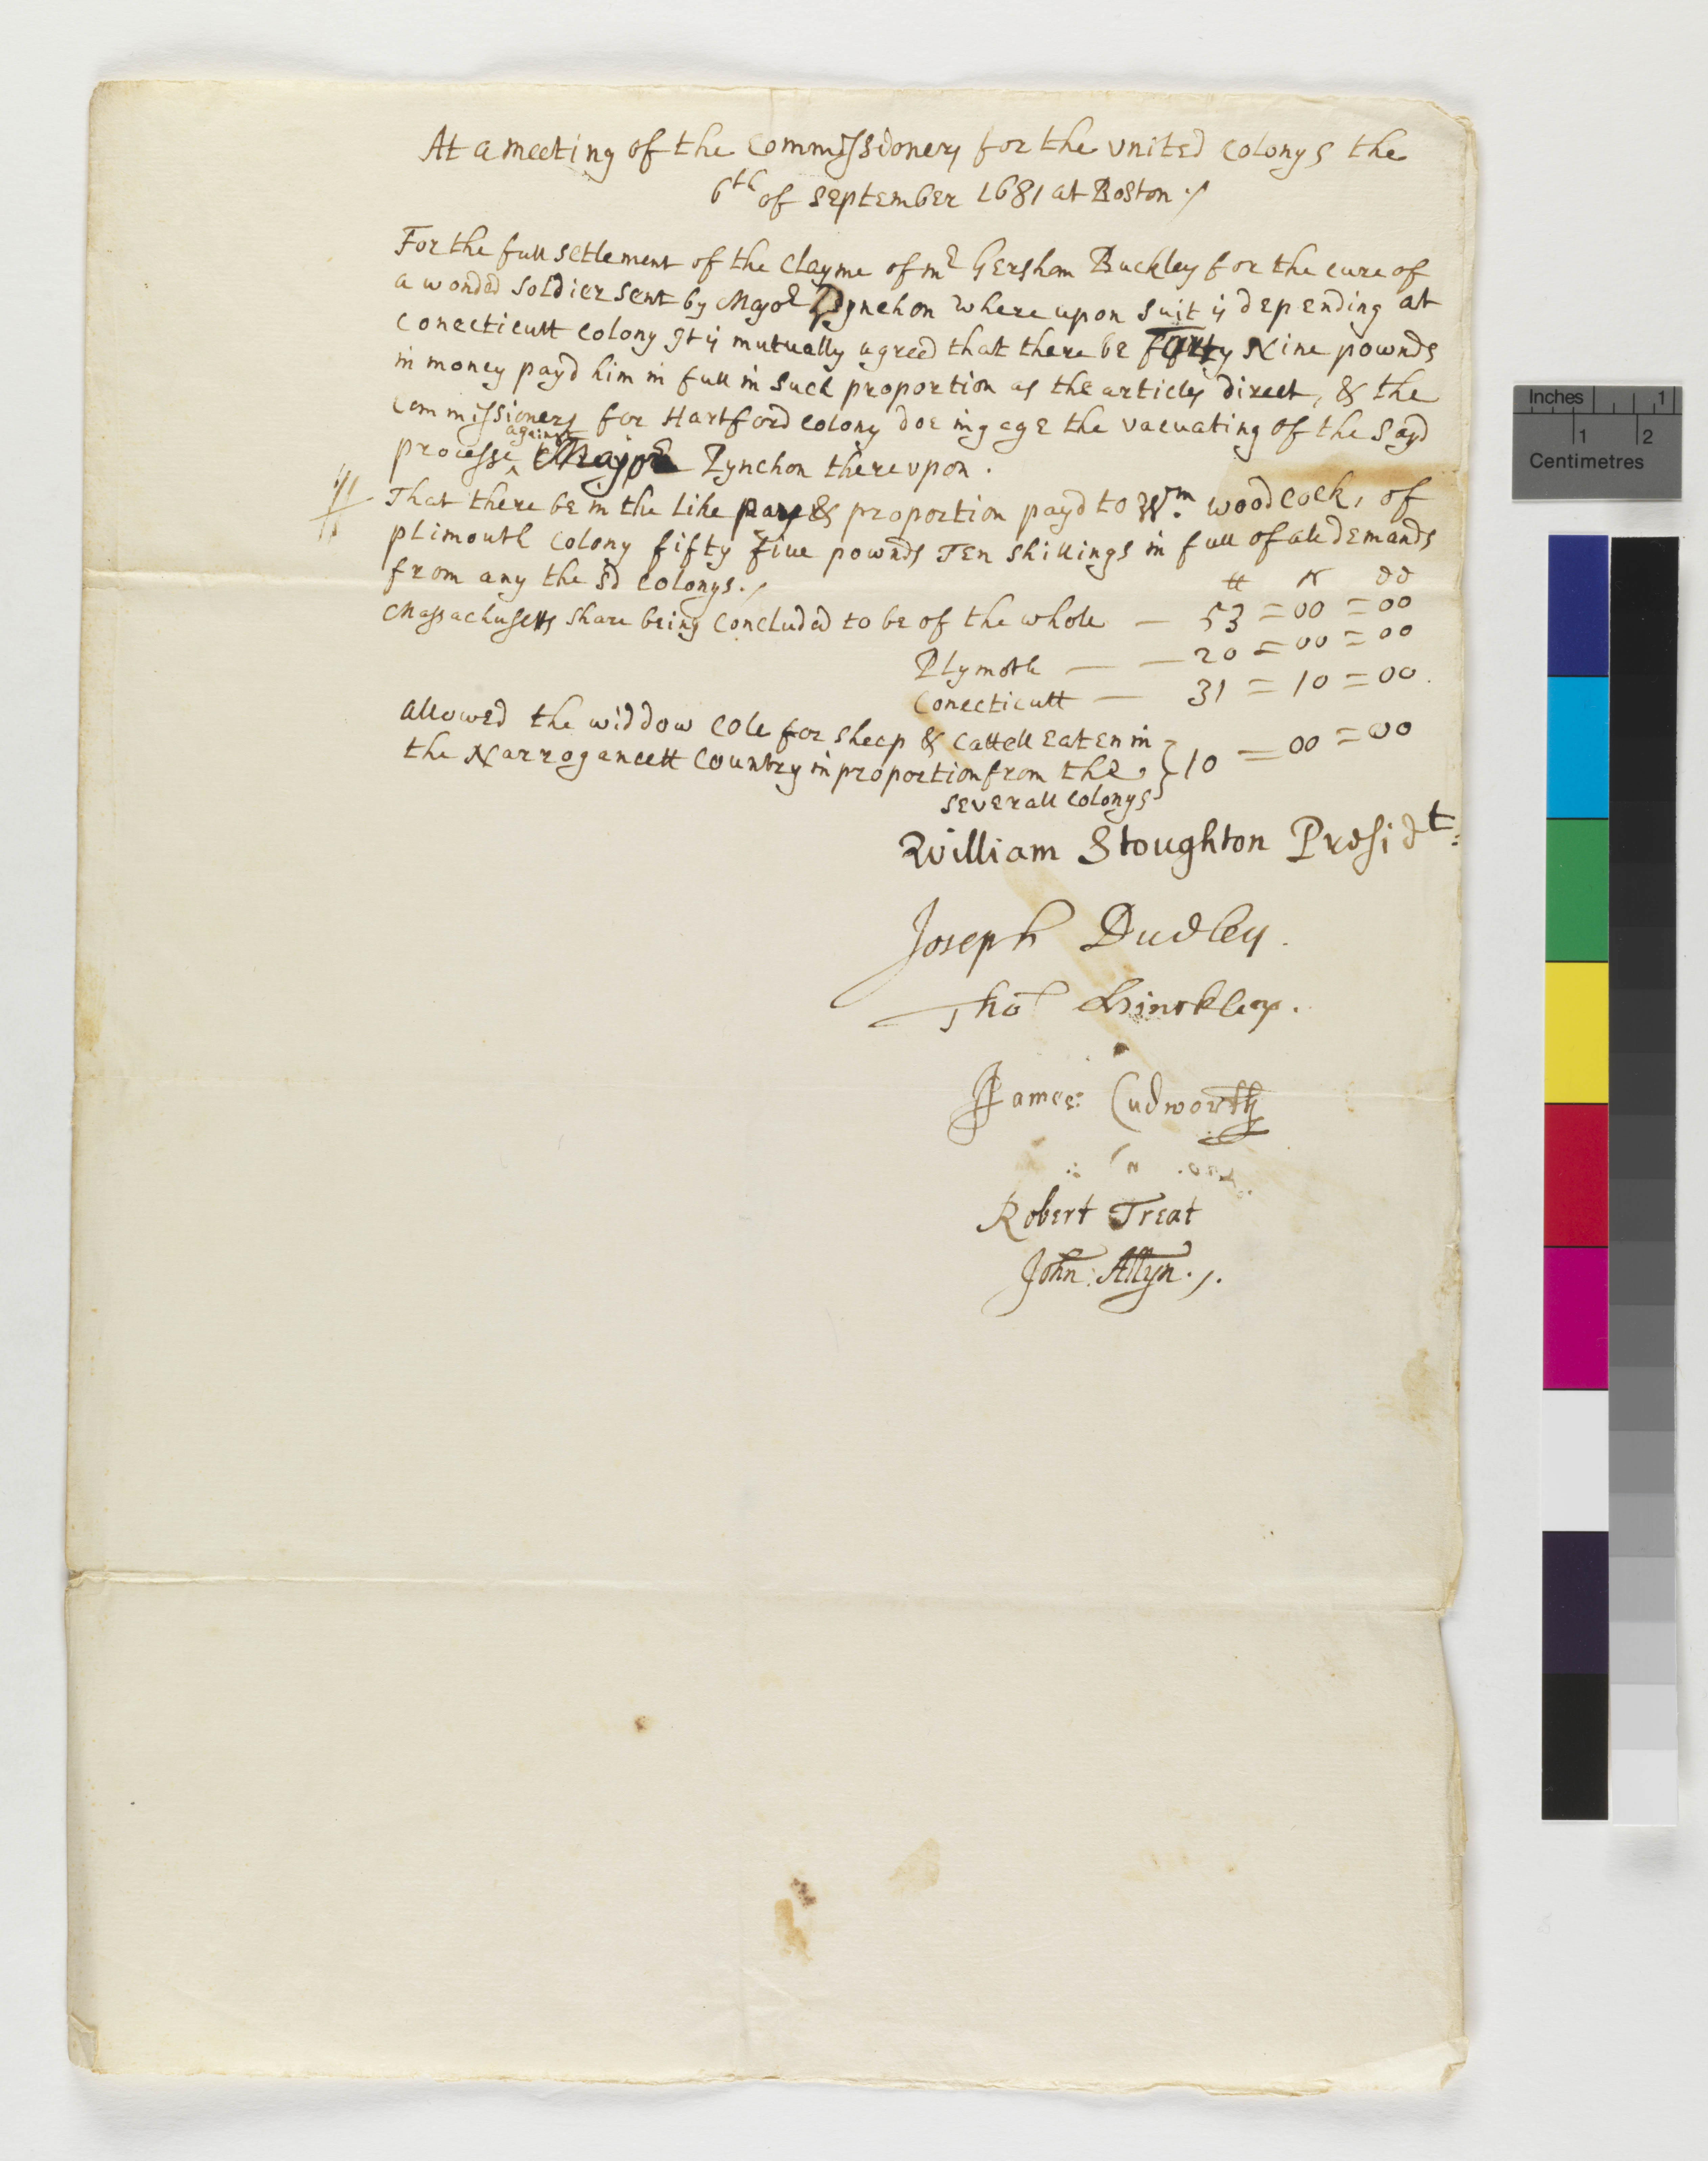 At a meeting of the Commissioners for the united Colonys the
6th of september 1681 at Boston
For the full setlement of the Clayme of mr Gershom Buckley for the cure of
a wonded soldier sent by Major Pynchon where upon suit is depending at
Conecticutt Colony It is mutually agreed that there be Forty Nine pownds
in money payd him in full in such proportion as the articles direct, & the
Commissioners for Hartford colony doe ingage the vacuating of the sayd
processe against Major Pynchon thereupon.
That there be in the like pay & proportion payd to Wm. woodcock, of
plimouth Colony fifty five pownds Ten shillings in full of all demands
from any the sd Colonys.
Massachusetts share being Concluded to be of the whole — 53 = 00 = 00
Plymoth — — 20 = 00 = 00
Conecticutt — 31 = 10 = 00.
allowed the widdow Cole for sheep & cattell eaten in
the Narrogancett Country in proportion from the } 10 = 00 = 00
severall Colonys
William Stoughton Presidt:
Joseph Dudley.
Tho Hinckley.
James: Cudworth
Robert Treat
John: Allyn.
Inches 1
1 2
Centimetres